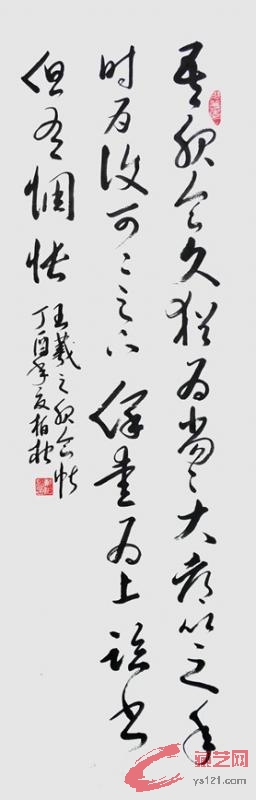 吾服食久猶为劣〻大都比之年
时为復可〻足下保愛为上臨書
但有惆悵
王羲之服食帖
丁酉年夏柏
藏艺网
ys121.com